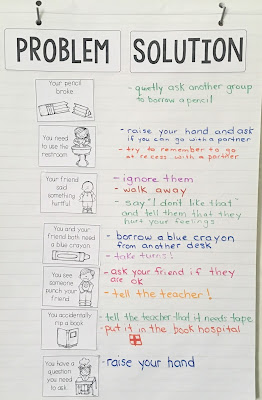 PROBLEM SOLUTION
Your pencil
broke
- quietly ask another group
to borrow a pencil
You need
to use the
restroom
- raise your hand and ask
if you can go with a partner
- try to remember to go
at recess with a partner
Your friend
said
something
hurtful
- ignore them
- walk away
- say "I don't like that"
and tell them that they
hurt your feelings
You and your
friend both need
a blue crayon
- borrow a blue crayon
from another desk
- take turns!
You see
someone
punch your
friend
- ask your friend if they
are ok
- tell the teacher!
You accidentally
rip a book
- tell the teacher that it needs tape
- put it in the book hospital
You have a
question you
need to ask
- raise your hand